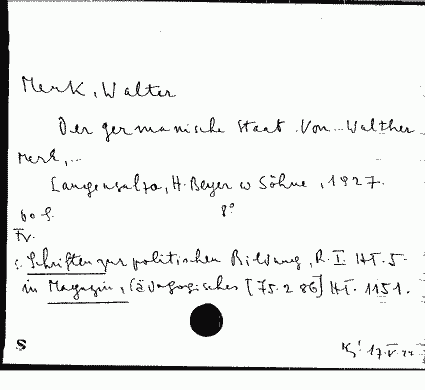 Merk, Walter
Der germanische Staat. Von ... Walther
Merk, ...
Langensalza, H. Beyer u Söhne, 1927.
60 S. 8°
Fv.
s. Schriften zur politischen Bildung, R. I. Ht. 5.
in Magazin, Pädagogisches [75. 2 86] Ht. 1151.
S 17. V.